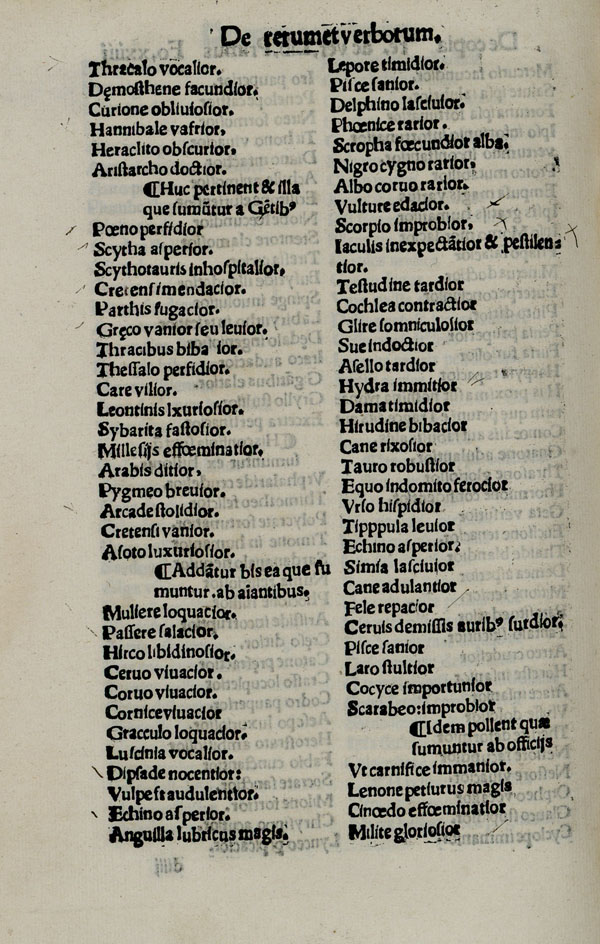 De rerum et verborum.
Thracalo vocalior.
Dęmosthene facundior.
Curione obliuiosior.
Hannibale vafrior.
Heraclito obscurior.
Aristarcho doctior.
¶Huc pertinent & illa
que sumũtur a Gẽtibꝰ
Pœno perfidior
Scytha asperior.
Scythotauris inhospitalior.
Cretensi mendacior.
Parthis fugacior.
Gręco vanior seu leuior.
Thracibus biba ior.
Thessalo perfidior.
Care vilior.
Leontinis lxuriosior.
Sybarita fastosior.
Millesijs effœminatior.
Arabis ditior.
Pygmeo breuior.
Arcade stolidior.
Cretensi vanior.
Asoto luxuriosior.
¶Addãtur his ea que su
muntur.ab aiantibus.
Muliere loquacior.
Passere salacior.
Hirco libidinosior.
Ceruo viuacior.
Coruo viuacior.
Cornice viuacior
Gracculo loquacior.
Luscinia vocalior.
Dipsade nocentior:
Vulpe fraudulentior.
Echino asperior.
Anguilla lubricus magis.
Lepore timidior.
Pisce sanior.
Delphino lasciuior.
Phœnice rarior.
Scropha fœcundior alba.
Nigro cygno rarior.
Albo coruo rarior.
Vulture edacior.
Scorpio improbior.
Iaculis inexpectãtior & pestilen⸗
tior.
Testudine tardior
Cochlea contractior
Glire somniculosior
Sue indoctior
Asello tardior
Hydra immitior
Dama timidior
Hirudine bibacior
Cane rixosior
Tauro robustior
Equo indomito ferocior
Vrso hispidior
Tipppula leuior
Echino asperior.
Simia lasciuior
Cane adulantior
Fele repacior
Ceruis demissis auribꝰ surdior.
Pisce sanior
Laro stultior
Cocyce importunior
Scarabeo:improbior
¶Idem pollent quæ
sumuntur ab officijs
Vt carnifice immanior.
Lenone periurus magis
Cinœdo effœminatior
Milite gloriosior